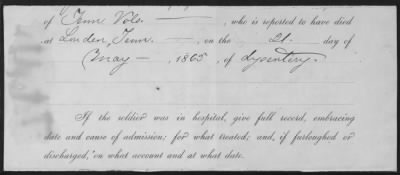 of Tenn Vols. ——, who is reported to have died
at Louden, Tenn. —, on the 21. day of
May —, 1865, of dysentery.
If the soldier was in hospital, give full record, embracing
date and cause of admission; for what treated; and, if furloughed or
discharged, on what account and at what date.